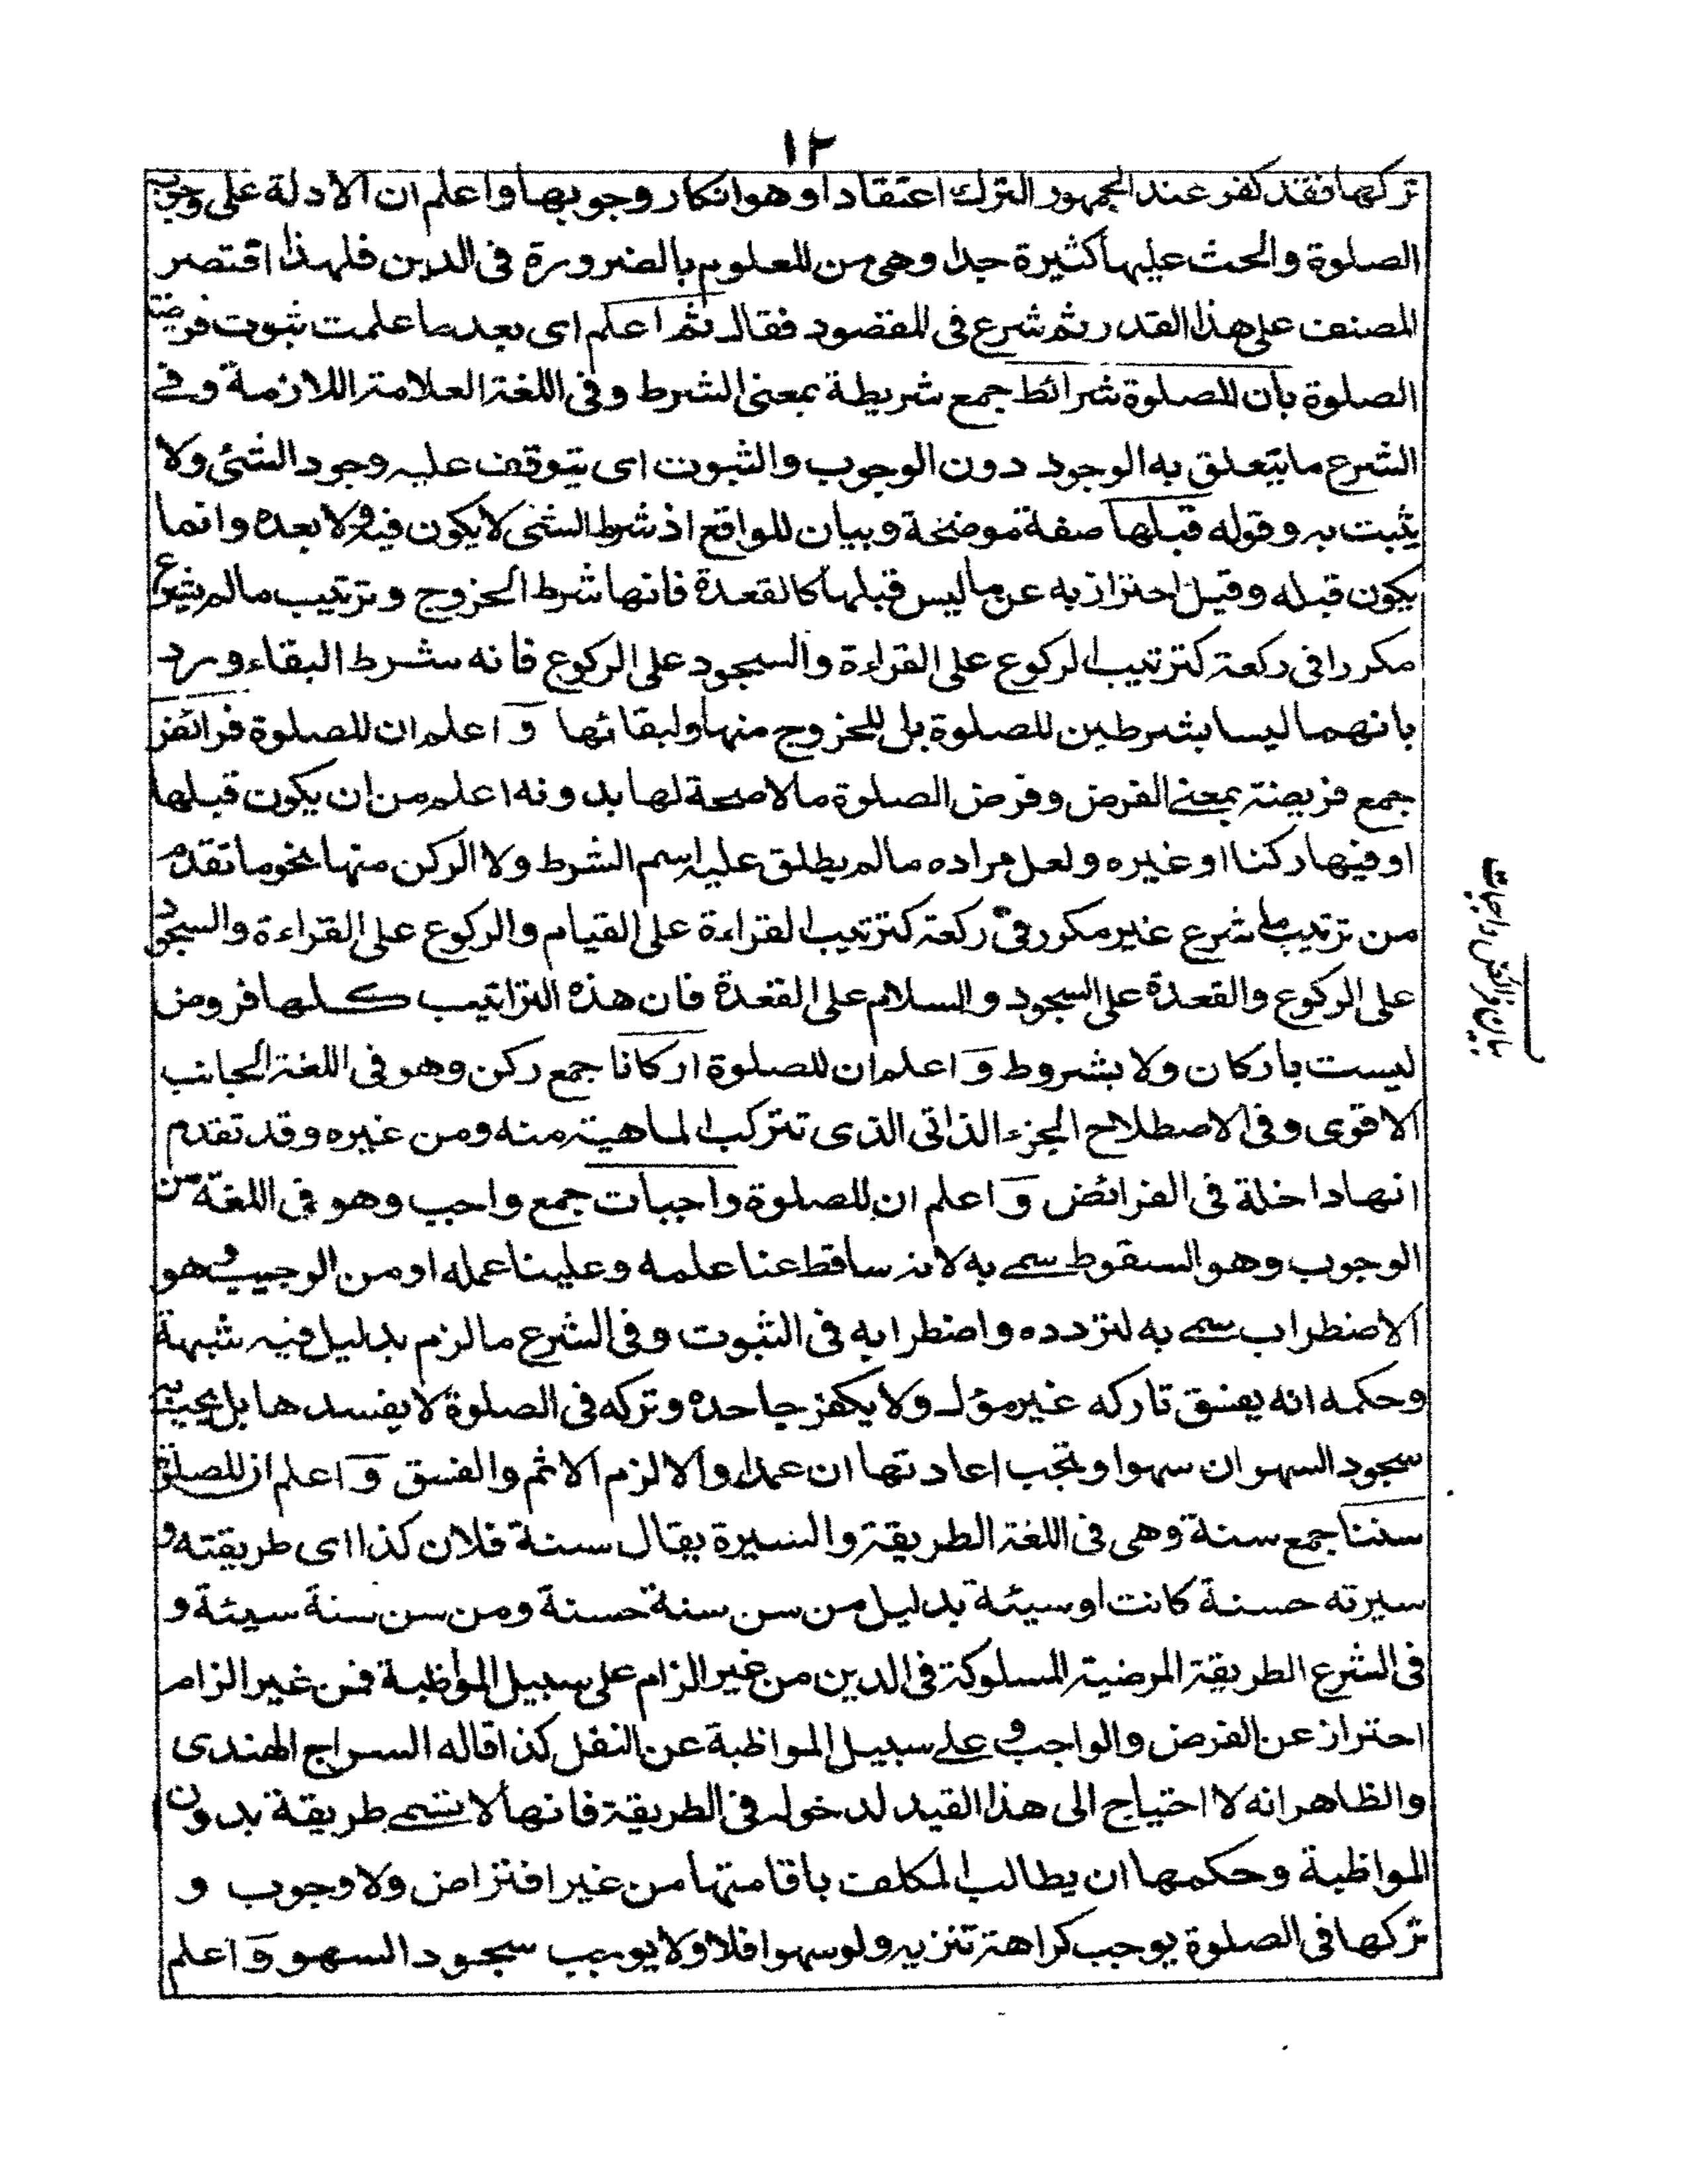 ١٢
تركها فقد كفر عند الجمهور الترك اعتقادا وهو انكار وجوبها واعلم ان الادلة على وجوب
الصلوة والحث عليها كثيرة جدا وهي من المعلوم بالضرورة فى الدين فلهذا اقتصر
المصنف على هذا القدر ثم شرع فى المقصود فقال ثم اعلم اى بعد ما علمت ثبوت فرضية
الصلوة بأن للصلوة شرائط جمع شريطة بمعنى الشرط وفى اللغة العلامة اللازمة وفے
الشرع ما يتعلق به الوجود دون الوجوب والثبوت اى يتوقف عليه وجود الشئ ولا
يثبت به وقوله قبلها صفة موضحة وبيان للواقع اذ شرط الشئ لا يكون فيه ولا بعده وانما
يكون قبله وقيل احتراز به عن ما ليس قبلها كالقعدة فانها شرط الخروج وترتيب ما لم يشرع
مكررا فى ركعة كترتيب الركوع على القراءة والسجود على الركوع فانه شرط البقاء ورد
بانهما ليسا بشرطين للصلوة بل للخروج منها ولبقائها وَاعلم ان للصلوة فرائض
جمع فريضة بمعنے الفرض وفرض الصلوة ما لا صحة لها بدونه اعلم من ان يكون قبلها
او فيها ركنا او غيره ولعل مراده ما لم يطلق عليه اسم الشرط ولا الركن منها نحو ما تقدم
من ترتيب ما شرع غير مكرر فى ركعة كترتيب القراءة على القيام والركوع على القراءة والسجود
على الركوع والقعدة على السجود والسلام على القعدة فان هذه التراتيب كلها فروض
ليست باركان ولا بشروط وَاعلم ان للصلوة اركانا جمع ركن وهو فى اللغة الجانب
الاقوى وفى الاصطلاح الجزء الذاتى الذى تتركب الماهية منه ومن غيره وقد تقدم
انها داخلة فى الفرائض وَاعلم ان للصلوة واجبات جمع واجب وهو فى اللغة من
الوجوب وهو السقوط سمے به لانه ساقط عنا علمه وعلينا عمله او من الوجيب وهو
الاضطراب سمے به لتردده واضطرابه فى الثبوت وفى الشرع ما لزم بدليل فيه شبهة
وحكمه انه يفسق تاركه غير مؤل ولا يكفر جاحده وتركه فى الصلوة لا يفسدها بل يجب به
سجود السهو ان سهوا وتجب اعادتها ان عمدا والا لزم الاثم والفسق وَاعلم ان للصلوة
سننا جمع سنة وهى فى اللغة الطريقة والسيرة يقال سنة فلان كذا اى طريقته و
سيرته حسنة كانت او سيئة بدليل من سن سنة حسنة ومن سن سنة سيئة و
فى الشرع الطريقة المرضية المسلوكة فى الدين من غير الزام على سبيل المواظبة فمن غير الزام
احتراز عن الفرض والواجب وعلے سبيل المواظبة عن النفل كذا قاله السراج الهندى
والظاهر انه لا احتياج الى هذا القيد لدخوله فى الطريقة فانها لا تسمے طريقة بدون
المواظبة وحكمها ان يطالب المكلف باقامتها من غير افتراض ولا وجوب و
تركها فى الصلوة يوجب كراهة تنزيه ولو سهوا فلا ولا يوجب سجود السهو وَاعلم
بيان فرائض واجبات